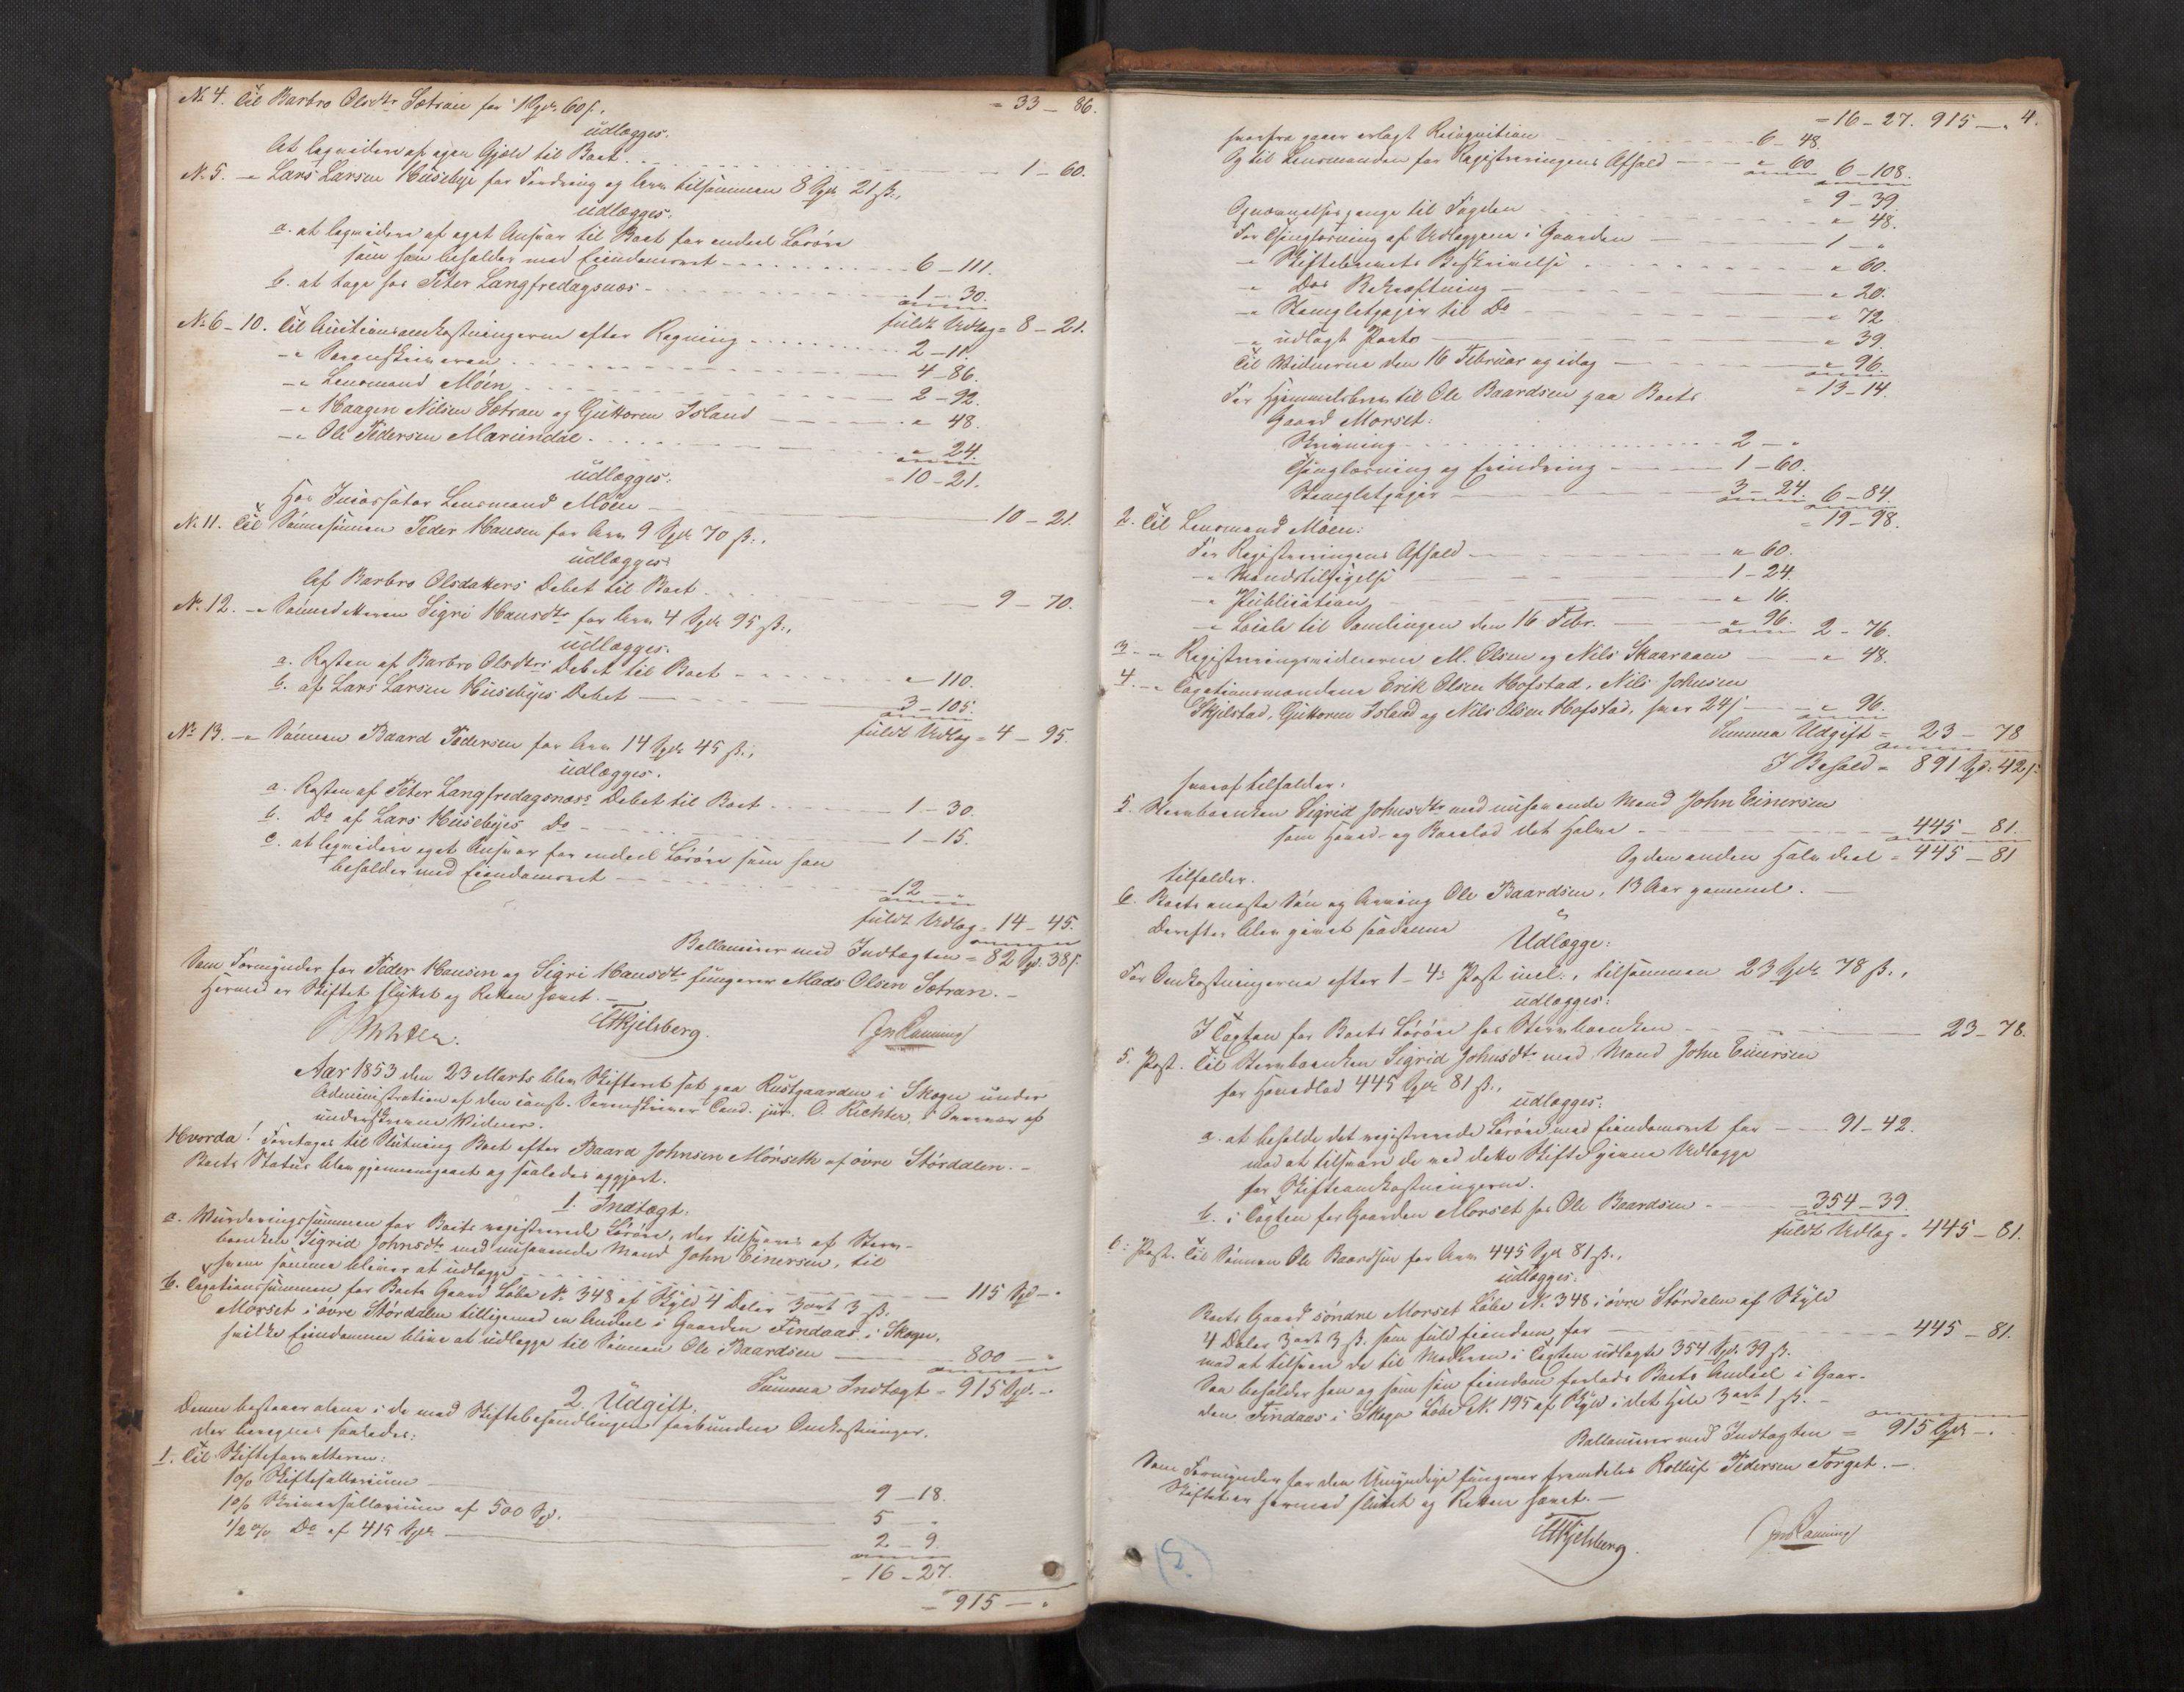 No 4. Til Barbro Olsdtr Sætran for 1 Spd. 60 s., = 33 – 86.
udlægges:
At liqvidere af egen Gjæld til Boet 1 – 60.
No 5. –„ Lars Larsen Huusebye for Fordring og Arv tilsammen 8 Spd 21 ß.,
udlægges:
a. at liqvidere af eget Ansvar til Boet for endeel Løsøre
som han beholder med Eiendomsret 6 – 111.
b. at tage hos Peter Langfredagsnæs 1 – 30.
fuldt Udlæg = 8 – 21.
No 6–10. Til Auctionsomkostningerne efter Regning 2 – 11.
–„ Sorenskriveren 4 – 86.
–„ Lensmand Moen 2 – 92.
–„ Haagen Nilsen Sætran og Guttorm Island „ 48.
–„ Ole Pedersen Mariendal „ 24.
= 10 – 21.
udlægges:
Hos Incassator Lensmand Moen 10 – 21.
No 11. Til Sønnesønnen Peder Hansen for Arv 9 Spd 70 ß.,
udlægges:
Af Barbro Olsdatters Debet til Boet 9 – 70.
No 12. –„ Sønnedatteren Sigri Hansdtr for Arv 4 Spd 95 ß.,
udlægges:
a. Resten af Barbro Olsdtrs Debet til Boet „ 110.
b. af Lars Larsen Huusebyes Debet 3 – 105.
fuldt Udlæg = 4 – 95.
No 13. –„ Sønnen Baard Pedersen for Arv 14 Spd 45 ß.,
udlægges.
a. Resten af Peter Langfredagsnæs's Debet til Boet 1 – 30.
b. Do af Lars Huusebyes Do 1 – 15.
c. at liqvidere eget Ansvar for endeel Løsøre som han
beholder med Eiendomsret 12 – „
fuldt Udlæg = 14 – 45.
Ballancerer med Indtægten = 82 Spd. 38 s.
Som Formynder for Peder Hansen og Sigri Hansdtr fungerer Mads Olsen Sætran. –
Hermed er Skiftet sluttet og Retten hævet. –
Richter. Kjelsberg.
Aar 1853 den 23 Marts blev Skifteret sat paa Rustgaarden i Skogn under
Administration af den const. Sorenskriver Cand. jur. O. Richter, i Overvær af
underskrevne Vidner.
Hvorda! Foretoges til Slutning Boet efter Baard Johnsen Mørseth af øvre Stördalen. –
Boets Status blev gjennemgaaet og saaledes opgjort.
1. Indtægt.
a. Vurderingssummen for Boets registrerede Løsøre, der tilsvares af Sterv-
boenken Sigrid Johnsdtr med nuhavende Mand John Einersen, til
hvem samme bliver at udlægge 115 Spd – „
b. Taxationssummen for Boets Gaard Løbe No 348 af Skyld 4 Daler 3 ort 3 ß.
Morset i øvre Stördalen tilligemed en Andeel i Gaarden Findaas i Skogn,
hvilke Eiendomme blive at udlægge til Sønnen Ole Baardsen 800 – „
Summa Indtægt = 915 Spd. – „
2. Udgift.
Denne bestaaer alene i de med Skiftebehandlingen forbundne Omkostninger,
der beregnes saaledes:
1. Til Skifteforvalteren:
1 % Skiftesallarium 9 – 18.
1 % Skriversallarium af 500 Spd. 5 – „
1/2 % Do af 415 Spd 2 – 9.
= 16 – 27.
= 915 – „
= 16 – 27. 915 – „ 4.
hvorfra gaaer erlagt Reqvisition 6 – 48.
Og til Lensmanden for Registreringens Afhold „ 60 6 – 108.
= 9 – 39.
Opnævnelsespenge til Fogden „ 48.
For Thinglæsning af Udlæggene i Gaarden 1 – „
–„ Skiftebrevets Beskrivelse „ 60.
–„ Dos Bekræftning „ 20.
–„ Stempletpapir til Do „ 72.
–„ udlagt Porto „ 39.
Til Vidnerne den 16 Februar og idag „ 96.
= 13 – 14.
For Hjemmelsbrev til Ole Baardsen paa Boets
Gaard Morset:
Skrivning 2 – „
Thinglæsning og Erindring 1 – 60.
Stempletpapir 3 – 24. 6 – 84.
= 19 – 98.
2. Til Lensmand Moen:
For Registreringens Afhold „ 60.
–„ Mandstilsigelse 1 – 24.
–„ Publication „ 16.
–„ Locale til Samlingen den 16 Febr. „ 96. 2 – 76.
3. –„ Registreringsvidnerne M. Olsen og Nils Skaaraaen „ 48.
4. –„ Taxationsmændene Erik Olsen Hofstad, Nils Johnsen
Skjelstad, Guttorm Island og Nils Olsen Hofstad, hver 24 s „ 96.
Summa Udgift = 23 – 78
I Behold = 891 Spd. 42 s.
hvoraf tilfalder:
5. Stervboenken Sigrid Johnsdtr med nuhavende Mand John Einersen
som Hoved- og Boeslod det Halve 445 – 81.
Og den anden halve deel = 445 – 81
tilfalder.
6. Boets eneste Søn og Arving Ole Baardsen, 13 Aar gammel. –
Derefter blev gjort saadanne
Udlægge:
For Omkostningerne efter 1 – 4s Post incl., tilsammen 23 Spd 78 ß.,
udlægges:
I Taxten for Boets Løsøre hos Stervboenken 23 – 78.
5. Post. Til Stervboenken Sigrid Johnsdtr med Mand John Einersen
for Hovedlod 445 Spd 81 ß.,
udlægges:
a. at beholde det registrerede Løsøre med Eiendomsret for 91 – 42.
mod at tilsvare de ved dette Skifte givne Udlægge
for Skifteomkostningerne.
b. i Taxten for Gaarden Morset hos Ole Baardsen 354 – 39.
fuldt Udlæg = 445 – 81.
6: Post. Til Sønnen Ole Baardsen for Arv 445 Spd 81 ß.,
udlægges:
Boets Gaard søndre Morset Løbe No 348 i øvre Stördalen af Skyld
4 Daler 3 ort 3 ß. som fuld Eiendom for 445 – 81.
mod at tilsvare de til Moderen i Taxten udlagte 354 Spd. 39 ß.
Saa beholder han og som sin Eiendom forlods Boets Andeel i Gaar-
den Findaas i Skogn Løbe No 195 af Skyld i det Hele 3 ort 1 ß. –
Ballancerer med Indtægten = 915 Spd – „
Som Formynder for den Umyndige fungerer fremdeles Rolluf Pedersen Forget. –
Skiftet er hermed sluttet og Retten hævet. –
Kjelsberg.